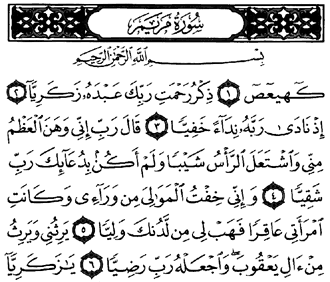 سُورَةُ مَرْيَمَ
بِسْمِ اللَّهِ الرَّحْمَٰنِ الرَّحِيمِ
كٓهيعٓصٓ ١ ذِكْرُ رَحْمَتِ رَبِّكَ عَبْدَهُۥ زَكَرِيَّآ ٢
إِذْ نَادَىٰ رَبَّهُۥ نِدَآءً خَفِيًّا ٣ قَالَ رَبِّ إِنِّى وَهَنَ ٱلْعَظْمُ
مِنِّى وَٱشْتَعَلَ ٱلرَّأْسُ شَيْبًا وَلَمْ أَكُنۢ بِدُعَآئِكَ رَبِّ
شَقِيًّا ٤ وَإِنِّى خِفْتُ ٱلْمَوَٰلِىَ مِن وَرَآءِى وَكَانَتِ
ٱمْرَأَتِى عَاقِرًا فَهَبْ لِى مِن لَّدُنكَ وَلِيًّا ٥ يَرِثُنِى وَيَرِثُ
مِنْ ءَالِ يَعْقُوبَ ۖ وَٱجْعَلْهُ رَبِّ رَضِيًّا ٦ يَٰزَكَرِيَّآ